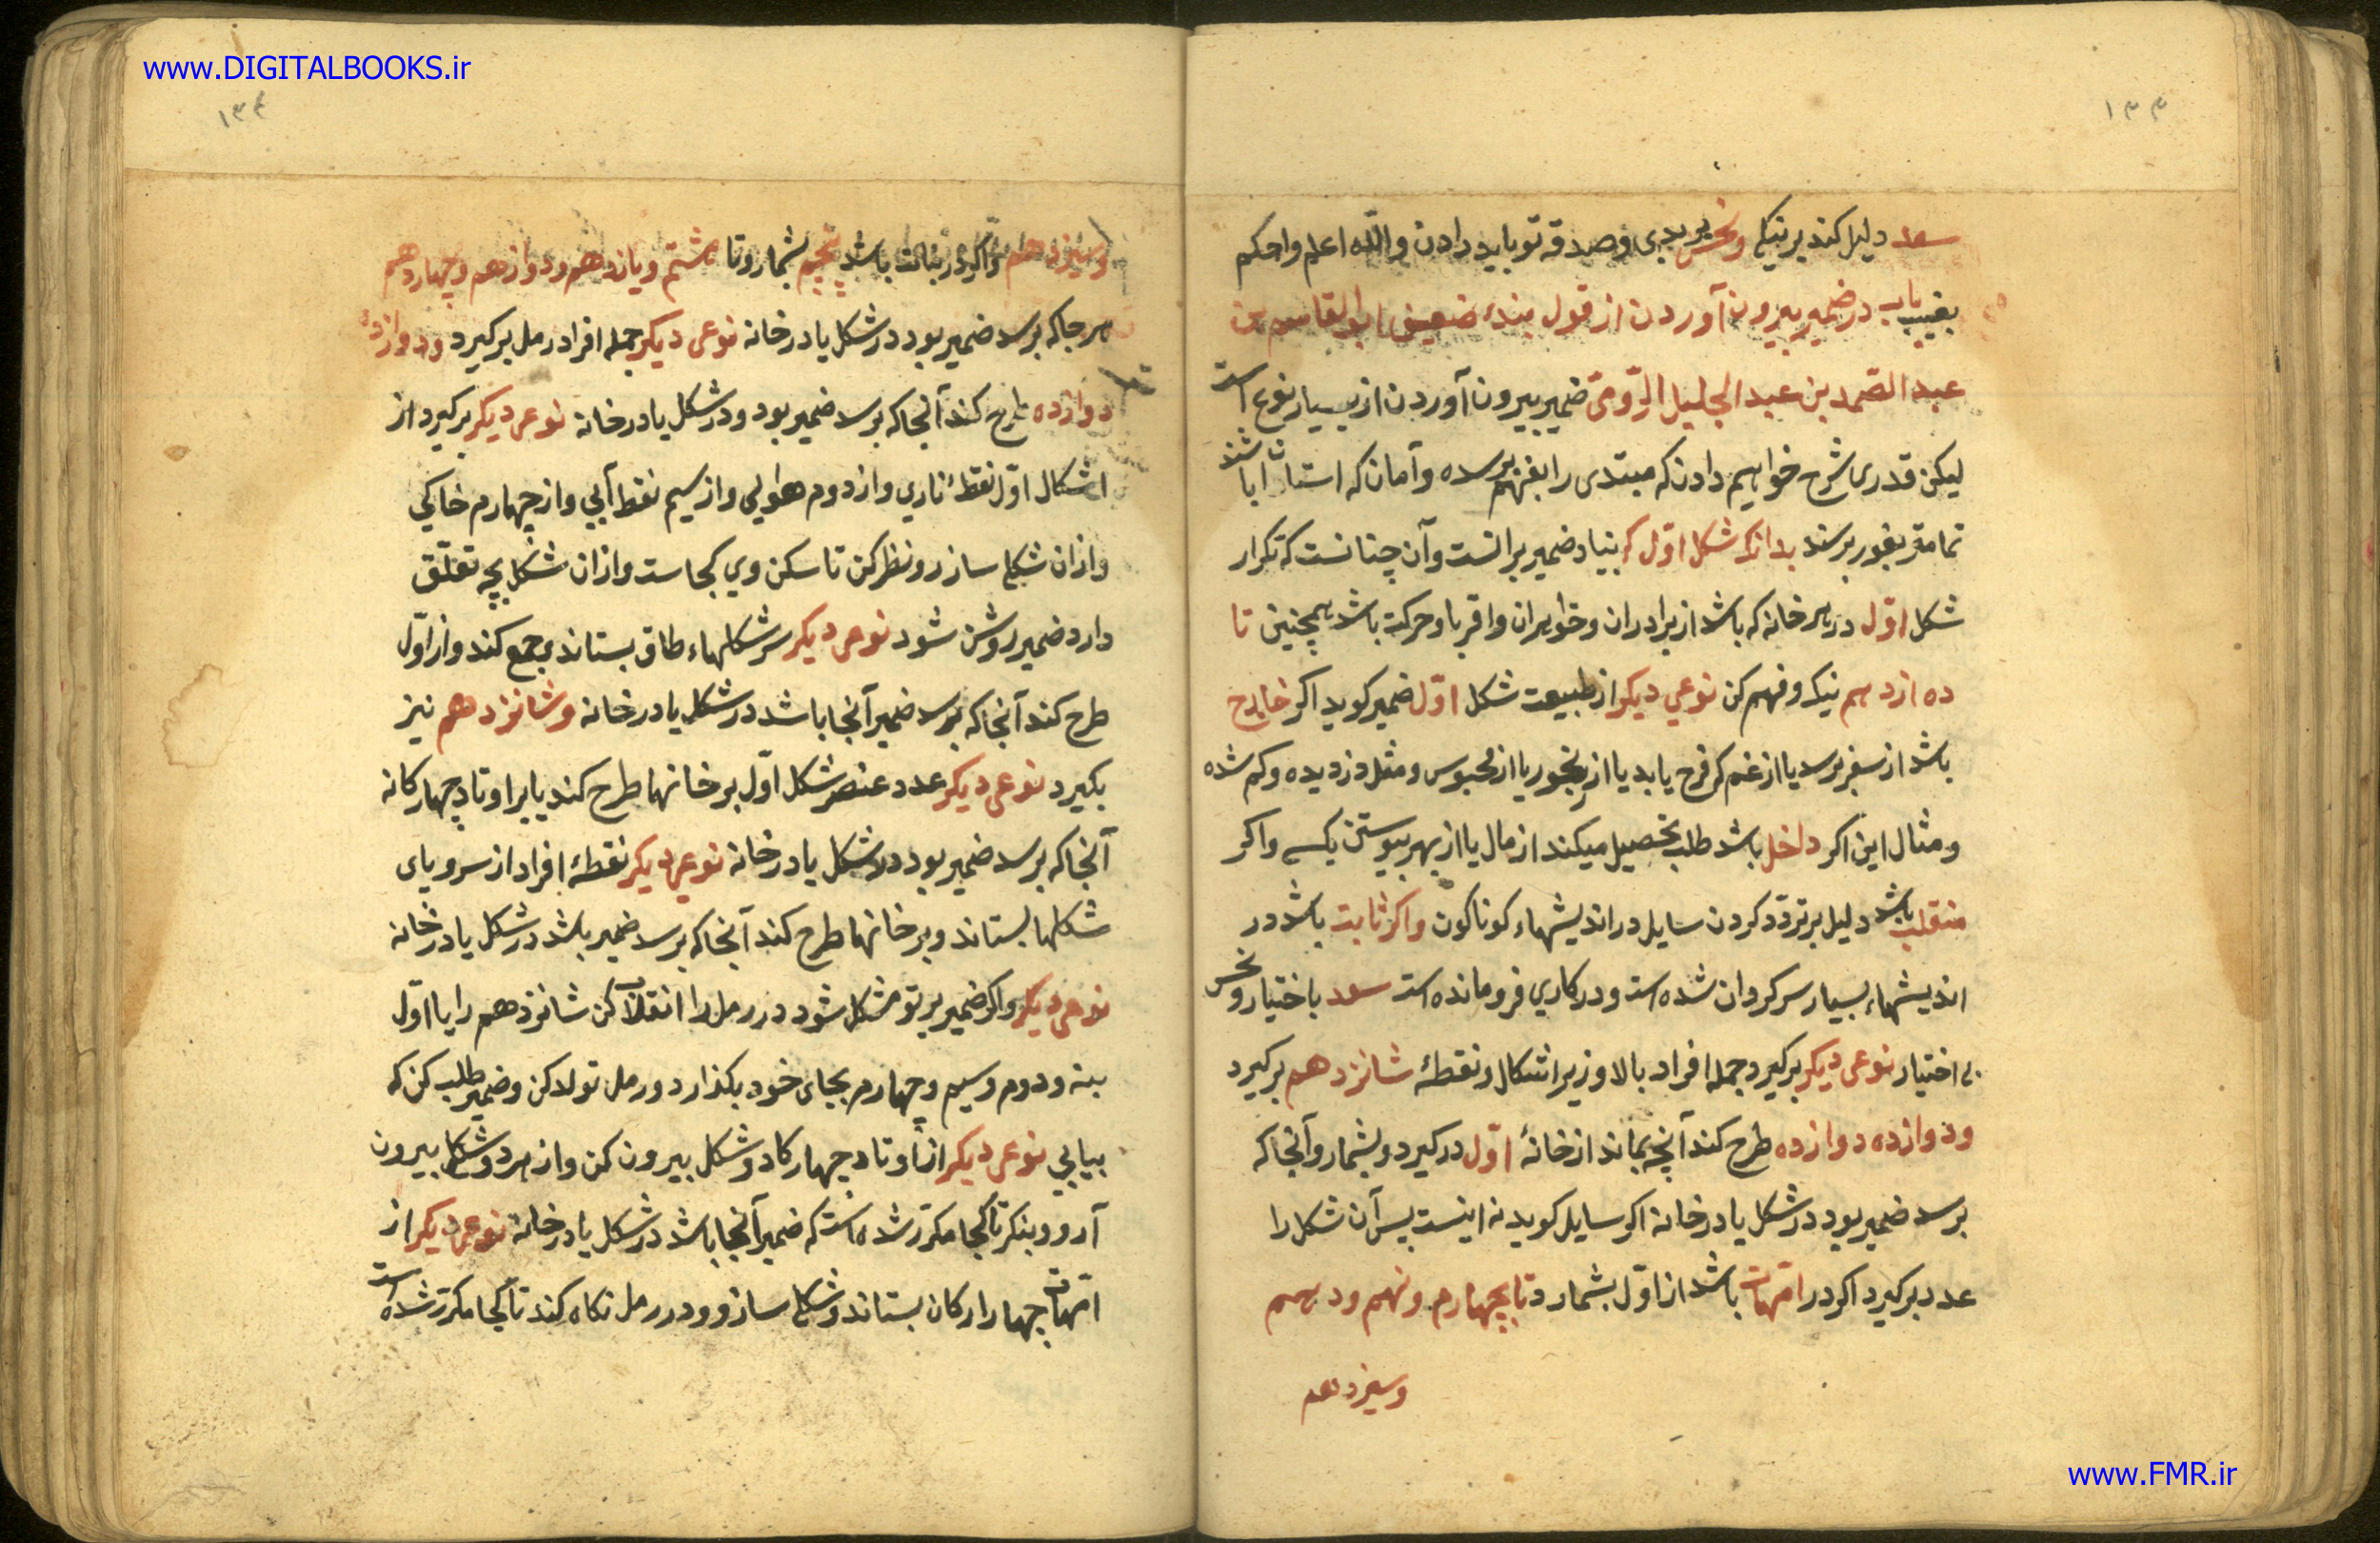 www.DIGITALBOOKS.ir
۱۳۳
سعد دلیل کند بر نیکی و نحس بر بدی و صدقه تو باید دادن والله اعلم واحکم
باب در ضمیر بیرون آوردن از قول بندهٔ ضعیف ابوالقاسم بن
عبد الصمد بن عبد الجلیل الرّومیّ ضمیر بیرون آوردن از بسیار نوع است
لیکن قدری شرح خواهیم دادن که مبتدی را بفهم رسده و آمان که استاد باشند
تمامتر بغور برسند بدانک شکل اوّل که بنیاد ضمیر برانست وآن چنانست که تکرار
شکل اوّل در هر خانه که باشد از برادران و خواهران و اقربا و حرکت باشد همچنین تا
ده ازدهم نیک و فهم کن نوعی دیکر از طبیعت شکل اوّل ضمیر کوید اکر خارج
باشد از سفر برسد یا از غم کی فرح یابد یا از رنجور یا از محبوس و مثل دزدیده و کم شده
و مثال این اکر داخل باشد طلب تحصیل میکند از مال یا از بهر پیوستن بکسی واکر
منقلب باشد دلیل بر تردّد کردن سایل در اندیشهاء کوناکون واکر ثابت باشد در
اندیشهاء بسیار سرکردان شده است و در کاری فرو مانده است سعد باختیار و نحس
بی اختیار نوعی دیکر برکیرد جمله افراد بالا و زیر اشکال و نقطهٔ شانزدهم برکیرد
و دوازده دوازده طرح کند آنچه بماند از خانهٔ اوّل درکیرد و بشمارد و آنجا که
برسد ضمیر بود در شکل یا در خانه اکر سایل کوید نه اینست پس آن شکل را
عدد برکیرد اکر در امّهات باشد از اوّل بشمارد تا بچهارم و نهم و دهم
وسیزدهم
۱۳۴
وسیزدهم واکر در بنات باشد پنجم بشمارد تا هشتم و یازدهم و دوازدهم و چهاردهم
هر جا که برسد ضمیر بود در شکل یا در خانه نوعی دیکر جمله افراد رمل برکیرد و دوازده
دوازده طرح کند آنجا که برسد ضمیر بود و در شکل یا در خانه نوعی دیکر برکیرد از
اشکال اوّل نقطهٔ ناری و از دوم هوایی و از سیم نقط آبی و از چهارم خاکی
و از ان شکلی سازد و نظر کن تا سکن وی کجاست و از ان شکل بچه تعلّق
دارد ضمیر روشن شود نوعی دیکر سر شکلهاء طاق بستاند و جمع کند و از اوّل
طرح کند آنجا که برسد ضمیر آنجا باشد در شکل یا در خانه و شانزدهم نیز
بکیرد نوعی دیکر عدد عنصر شکل اوّل بر خانها طرح کند یا بر اوتاد چهارکانه
آنجا که برسد ضمیر بود در شکل یا در خانه نوعی دیکر نقطهٔ افراد از سر و پای
شکلها بستاند و بر خانها طرح کند آنجا که برسد ضمیر باشد در شکل یا در خانه
نوعی دیکر واکر ضمیر بر تو مشکل شود در رمل را انقلاب کن شانزدهم را با اوّل
بنه و دوم و سیم و چهارم بجای خود بکذار و رمل تولد کن و ضمیر طلب کن که
بیابی نوعی دیکر از اوتاد چهارکاد و شکل بیرون کن و از هر دو شکلی بیرون
آر و و بنکر تا کجا مکرّر شده است که ضمیر آنجا باشد در شکل یا در خانه نوعی دیکر از
امّهات چهار ارکان بستاند و شکلی سازد و در رمل نکاه کند تا کجا مکرّر شده است
www.FMR.ir